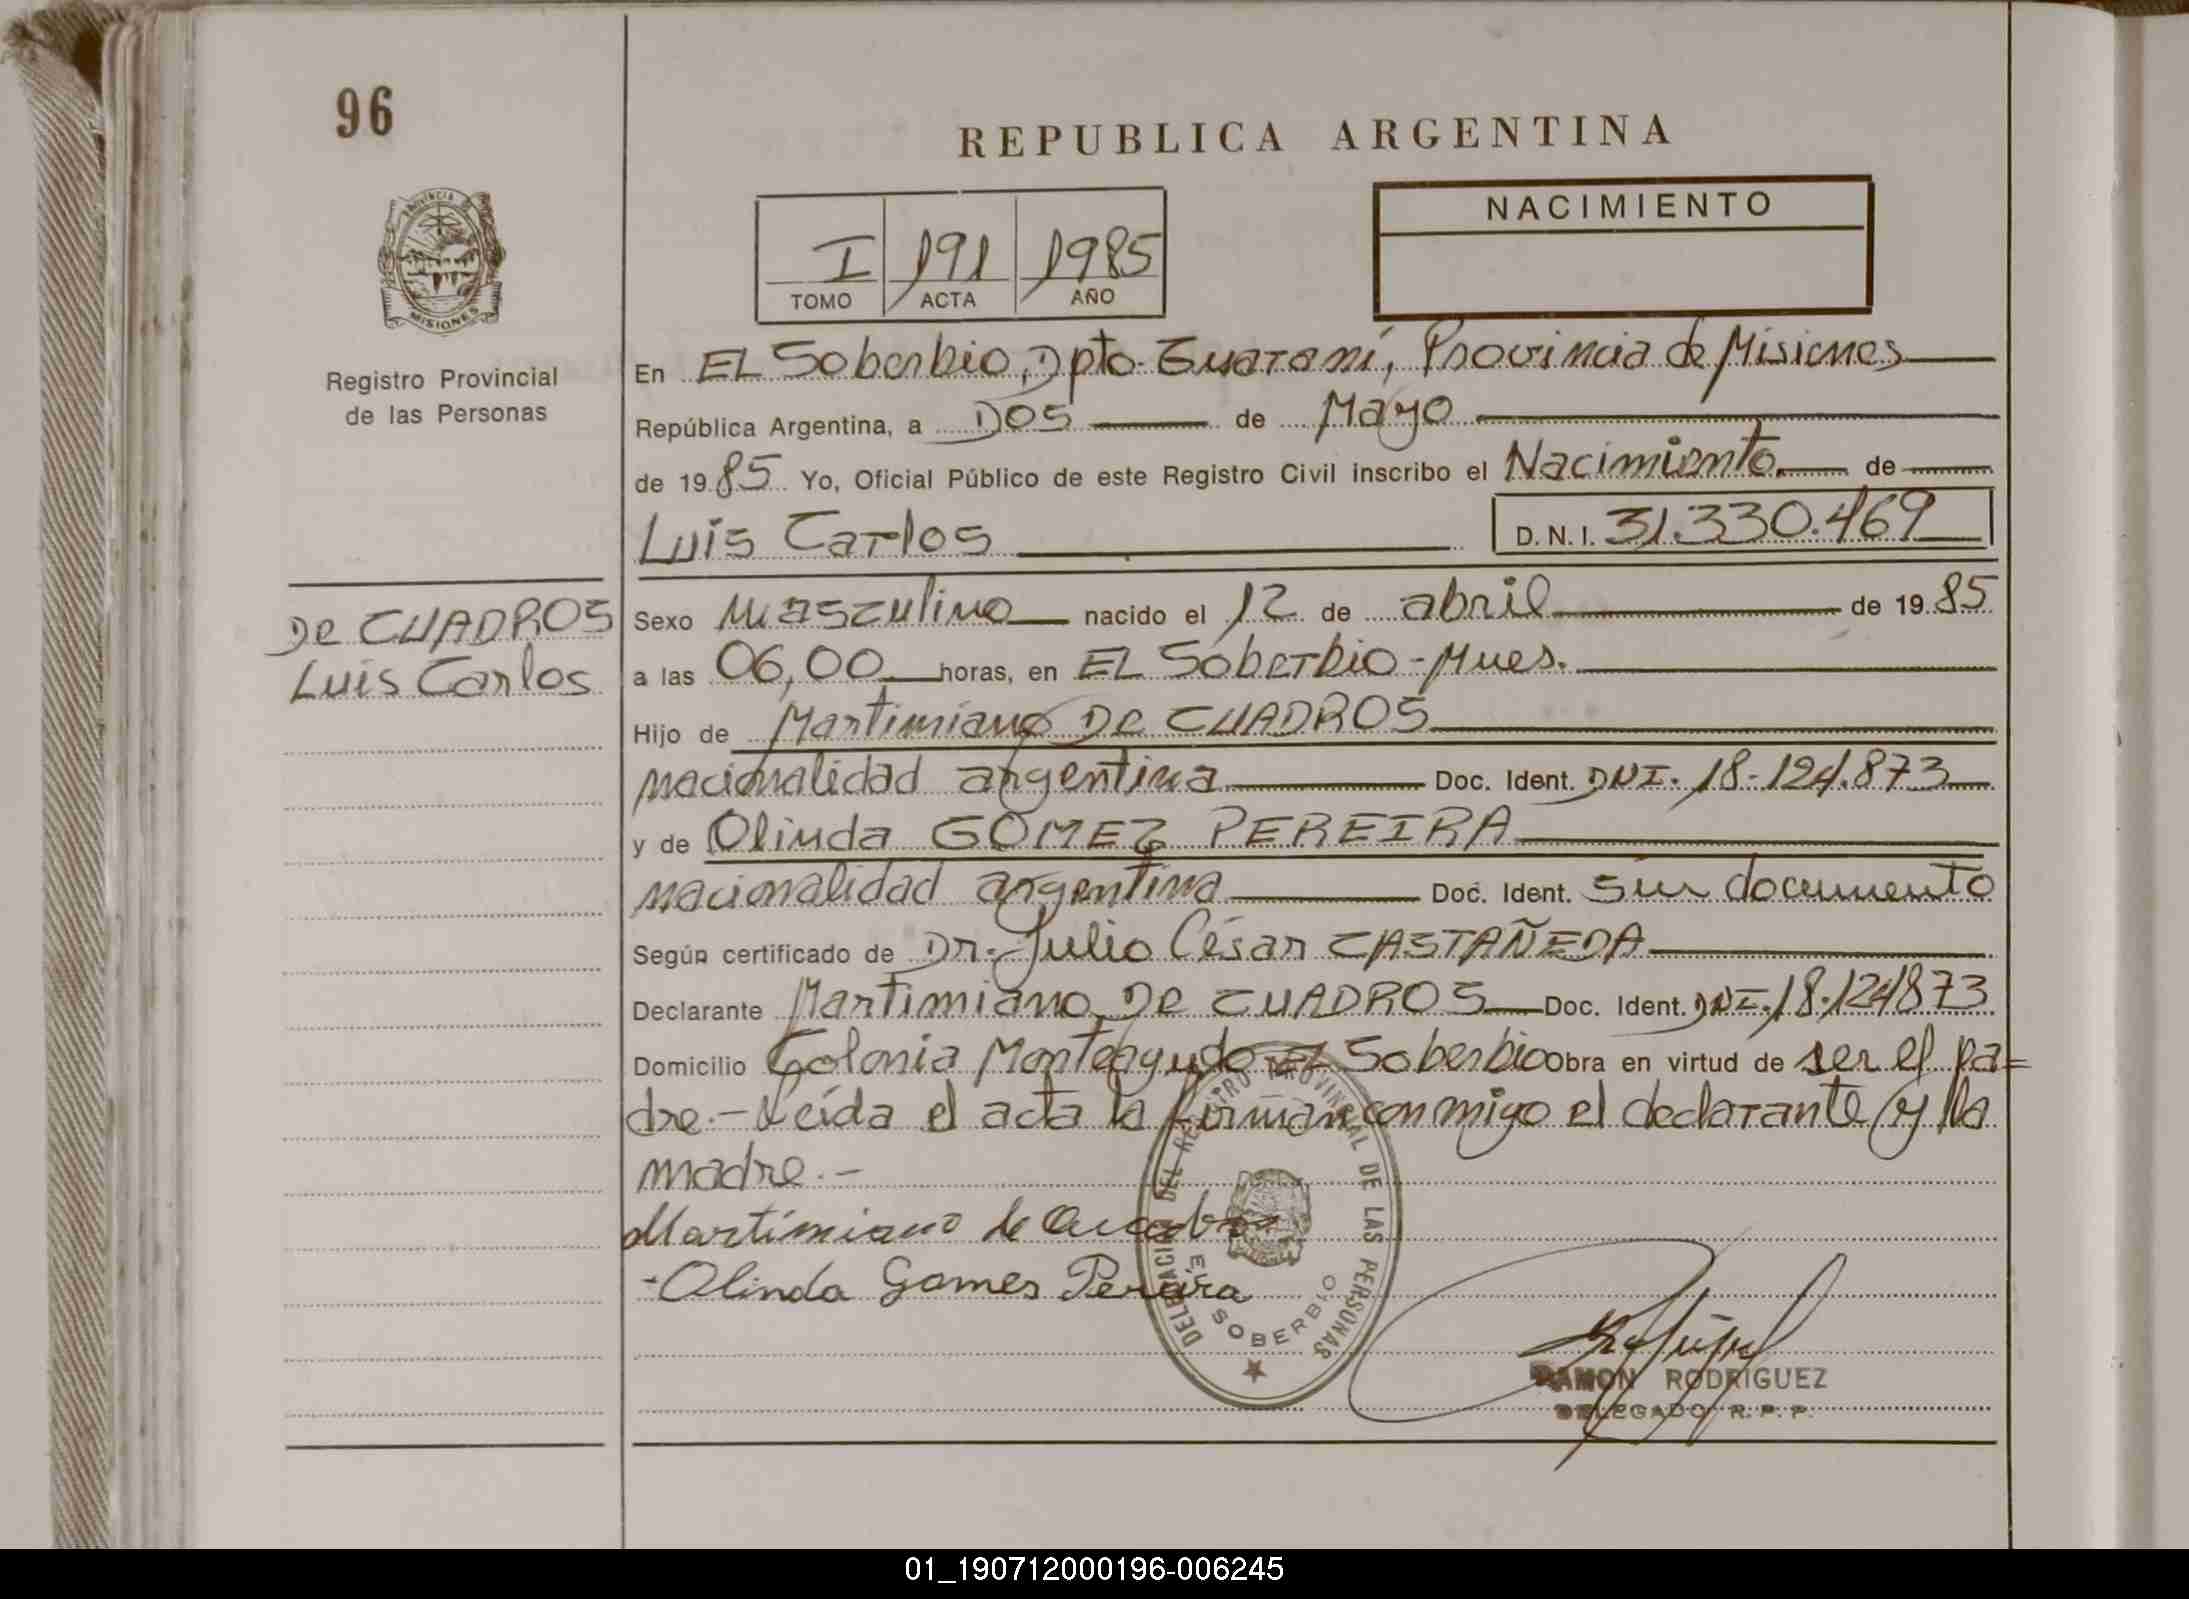 96
REPUBLICA ARGENTINA
PROVINCIA DE
MISIONES
Registro Provincial
de las Personas
I 191 1985
TOMO ACTA AÑO
NACIMIENTO
En EL Soberbio, Dpto. Guaraní, Provincia de Misiones
República Argentina, a DOS de Mayo
de 1985 Yo, Oficial Público de este Registro Civil inscribo el Nacimiento de
Luis Carlos D.N.I. 31.330.469
De CUADROS
Luis Carlos
Sexo masculino nacido el 12 de abril de 1985
a las 06,00 horas, en EL Soberbio - Mnes.
Hijo de Martimiano De CUADROS
nacionalidad argentina Doc. Ident. DNI. 18.124.873
y de Olinda GOMEZ PEREIRA
nacionalidad argentina Doc. Ident. sin documento
Según certificado de Dr. Julio César CASTAÑEDA
Declarante Martimiano De CUADROS Doc. Ident. DNI. 18.124873
Domicilio Colonia Monteagudo EL Soberbio Obra en virtud de ser el pa=
dre.- Leída el acta la firman conmigo el declarante y la
madre.-
Martimiano de Cuadros
- Olinda Gomes Pereira
DELEGACION DEL REGISTRO PROVINCIAL DE LAS PERSONAS
EL SOBERBIO
RAMON RODRIGUEZ
DELEGADO R. P. P.
01_190712000196-006245